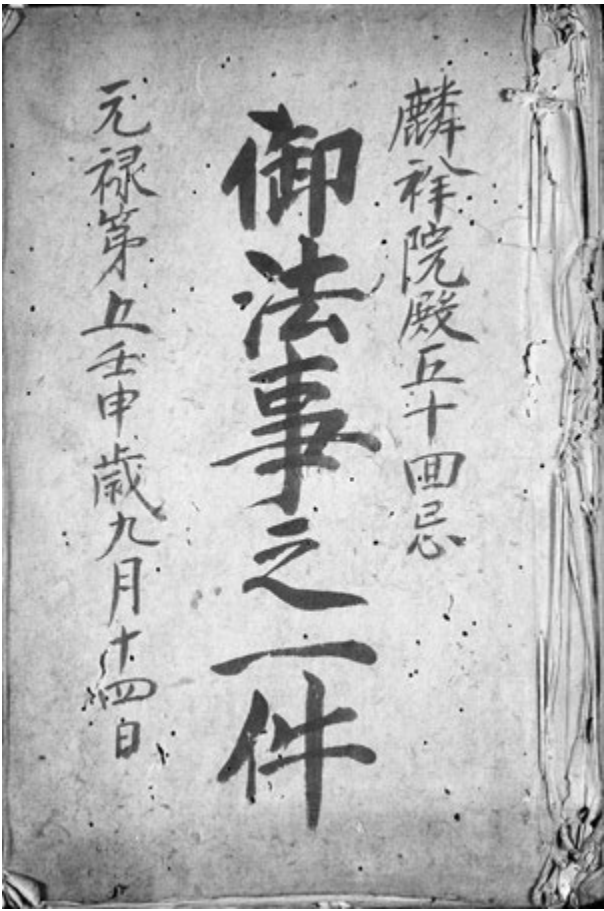 麟祥院殿五十回忌
御法事之一件
元禄第五壬申歳九月十四日